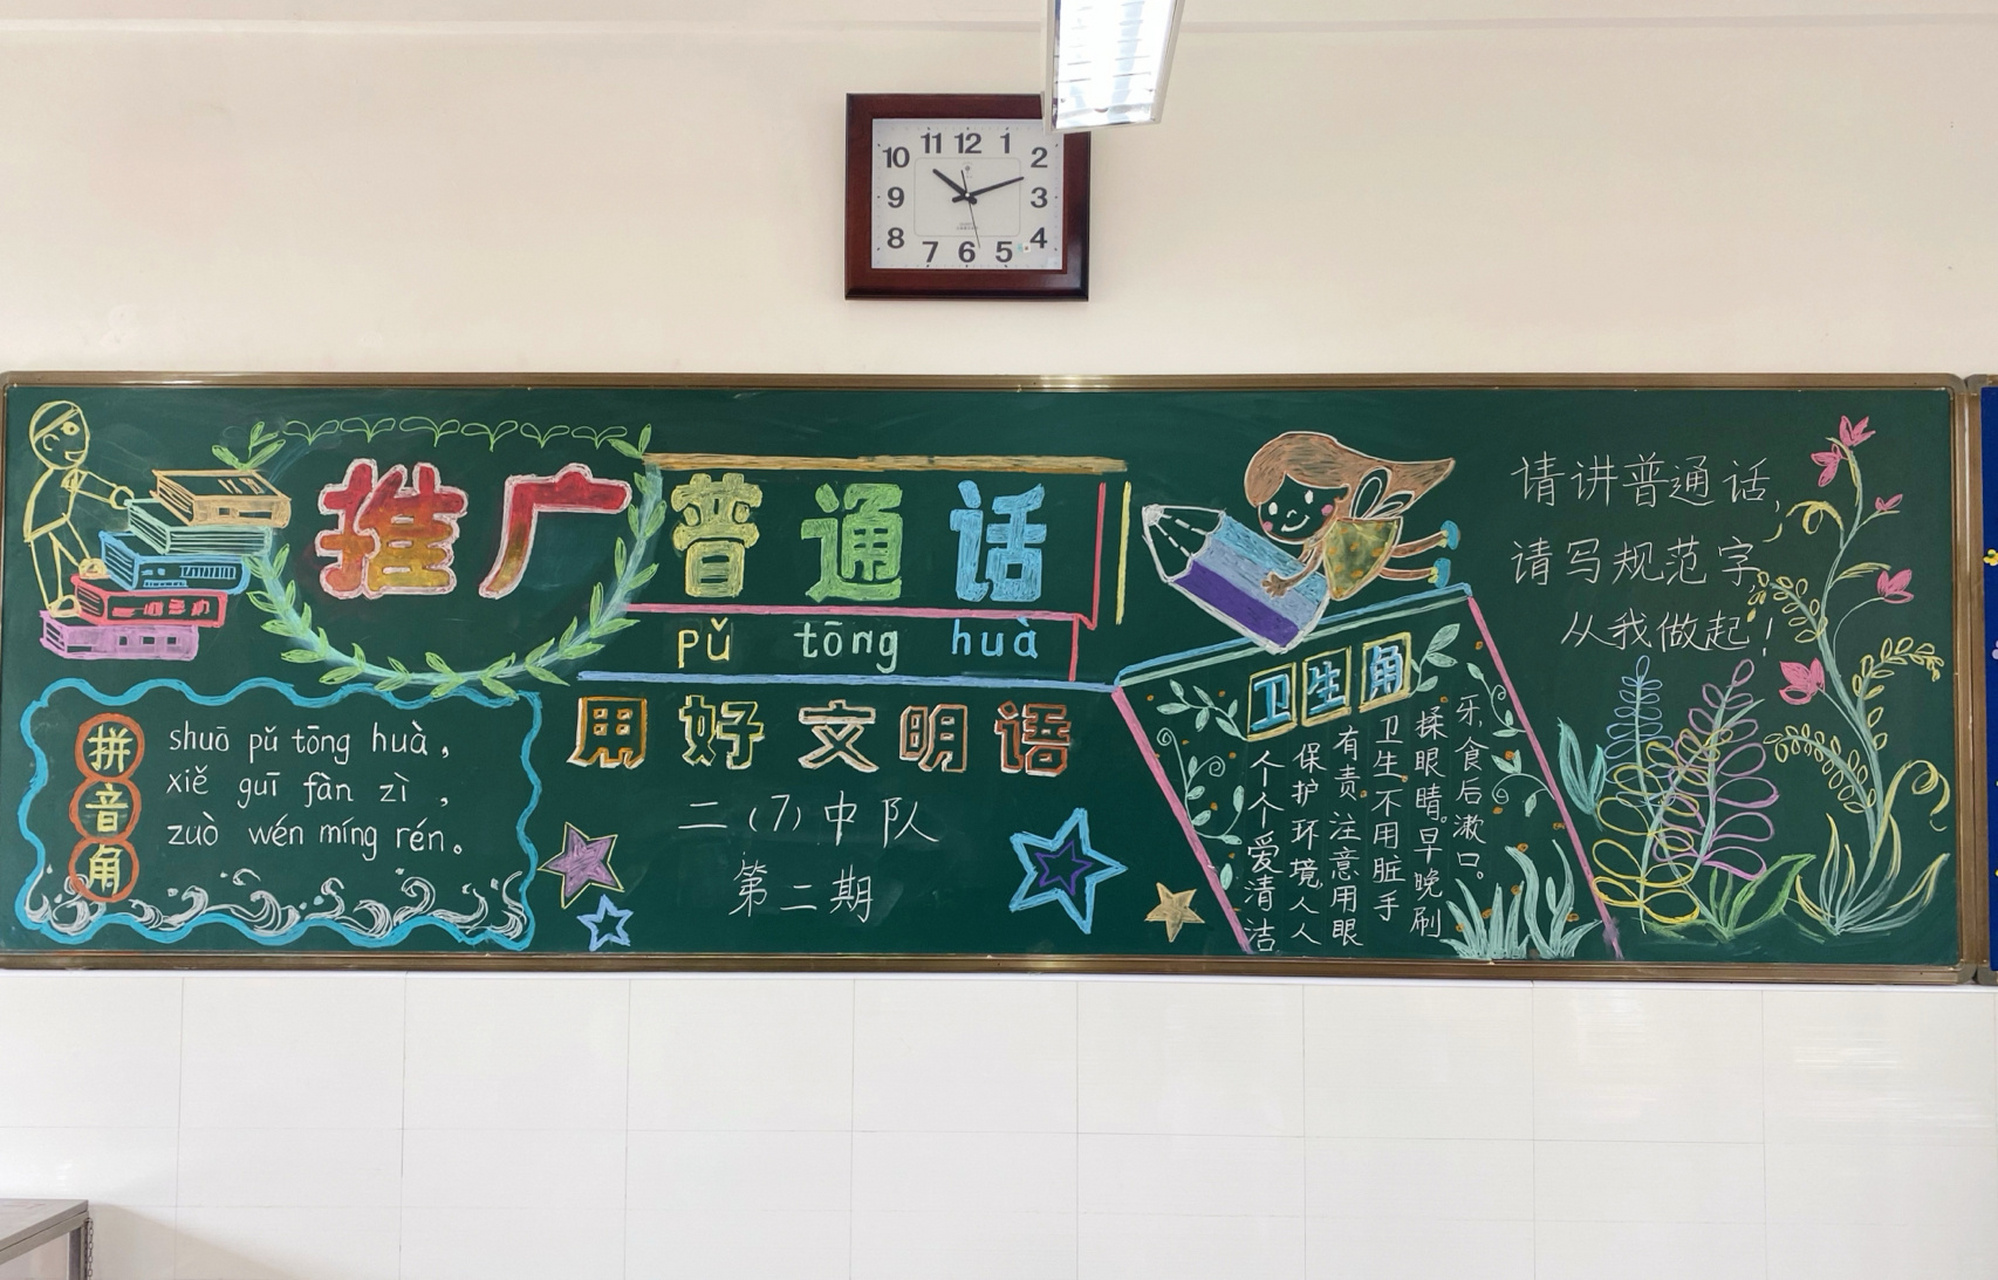 11 12 1
10 2
9 3
8 4
7 6 5
推广普通话
pǔ tōng huà
用好文明语
二(7)中队
第二期
拼音角
shuō pǔ tōng huà，
xiě guī fàn zì，
zuò wén míng rén。
卫生角
个个爱清洁
保护环境,人人
有责.注意用眼
卫生.不用脏手
揉眼睛。早晚刷
牙,食后漱口。
请讲普通话,
请写规范字,
从我做起！